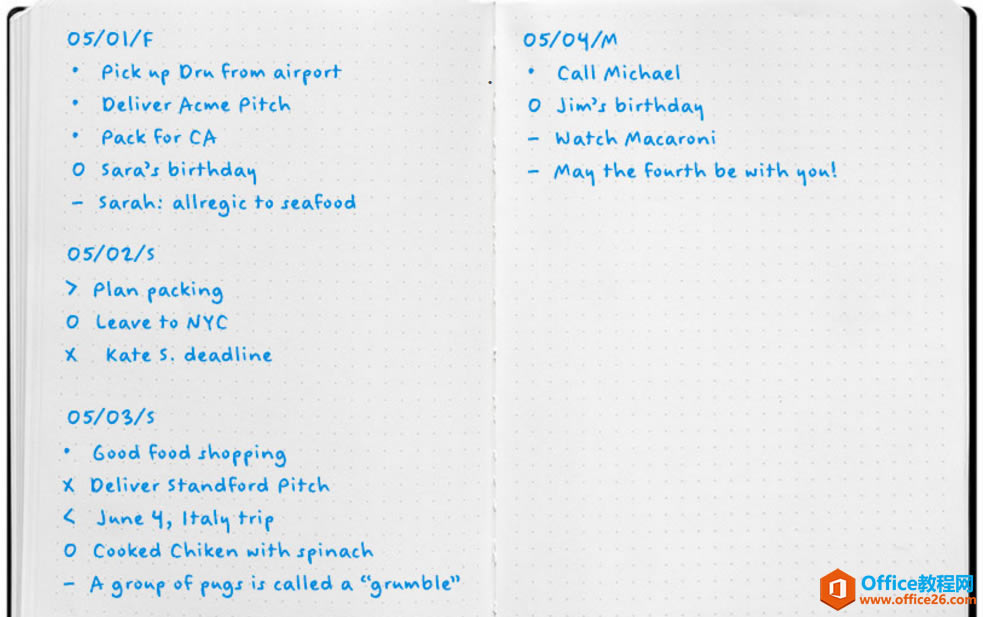 05/01/F
• Pick up Dru from airport
• Deliver Acme Pitch
• Pack for CA
O Sara's birthday
– Sarah: allregic to seafood
05/02/S
> Plan packing
O Leave to NYC
x Kate S. deadline
05/03/S
• Good food shopping
x Deliver Standford Pitch
< June 4, Italy trip
O Cooked Chiken with spinach
– A group of pugs is called a "grumble"
05/04/M
• Call Michael
O Jim's birthday
– Watch Macaroni
– May the fourth be with you!
Office教程网
www.office26.com